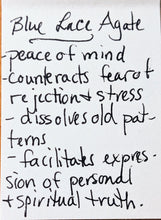 Blue Lace Agate
-peace of mind
-counteracts fear of
rejection & stress
- dissolves old pat-
terns
- facilitates expres-
sion of personal
& spiritual truth.